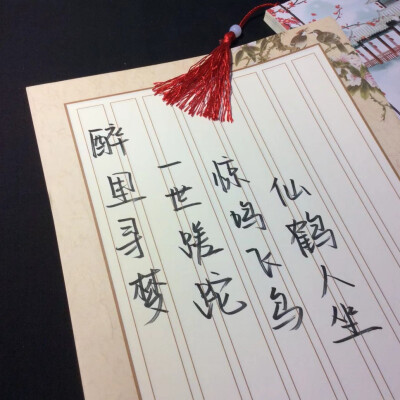 仙鹤人坐
惊鸣飞鸟
一世蹉跎
醉里寻梦